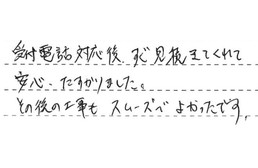 受付電話対応後、すぐ見積きてくれて
安心、たすかりました。
その後の工事も スムーズで よかったです。